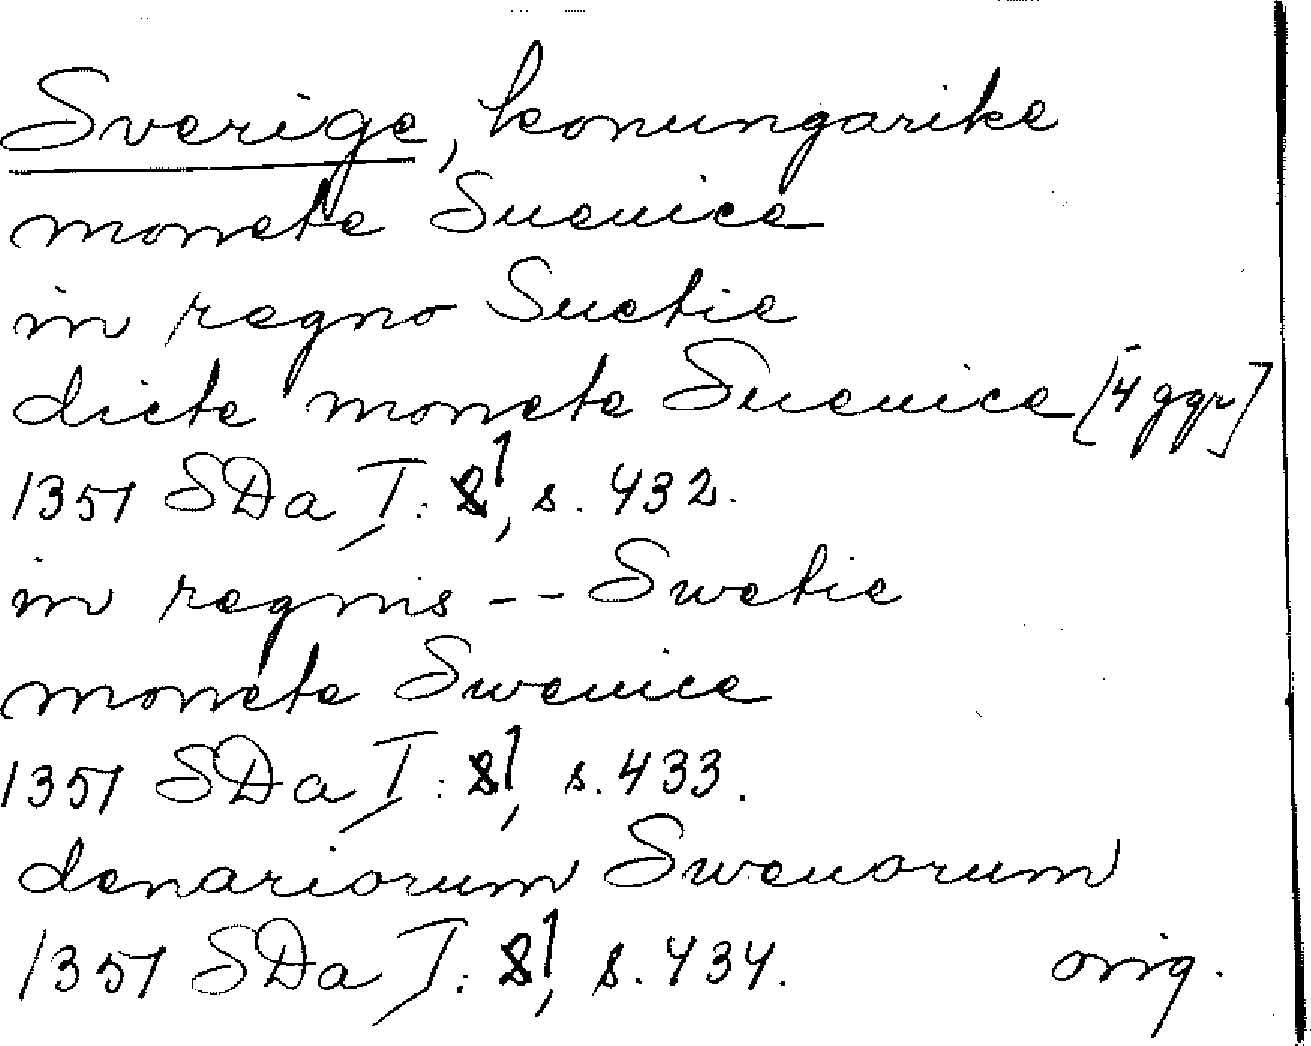 Sverige, konungarike
monete Sueuice
in regno Suetie
dicte monete Sueuice [4 ggr]
1357 SDa I: 1, s. 432.
in regnis -- Swetie
monete Sweuice
1357 SDa I: 1, s. 433.
denariorum Sweuorum
1357 SDa I: 1, s. 434. orig.